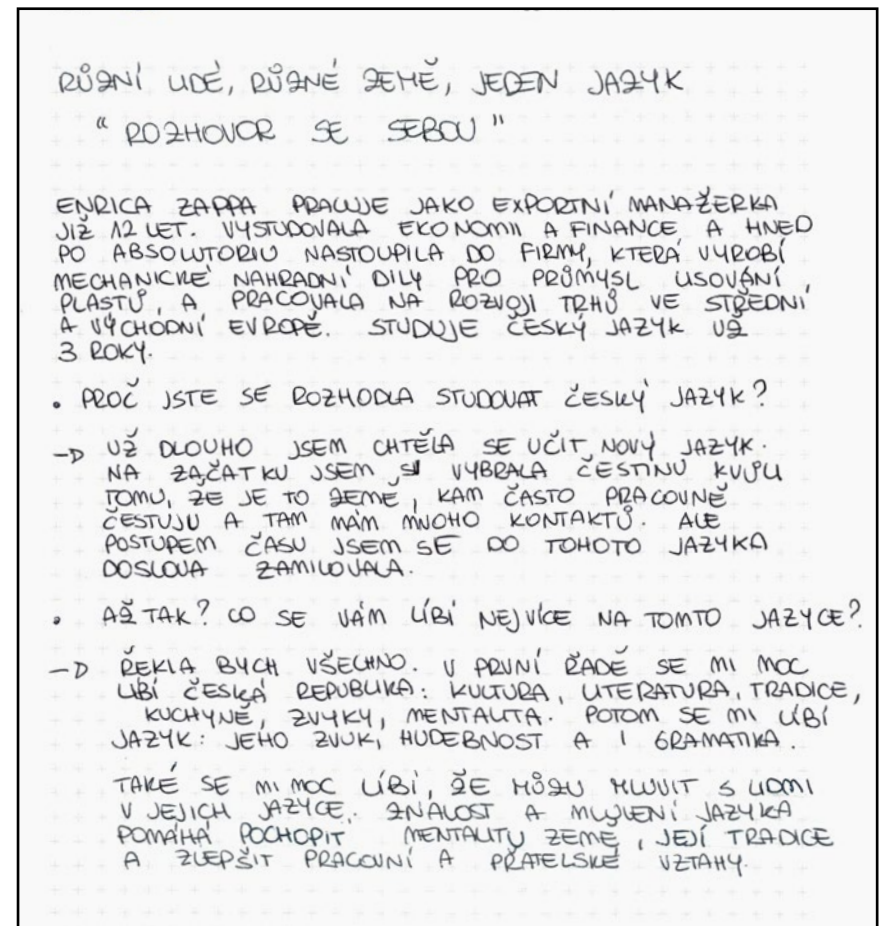 RŮZNÍ LIDÉ, RŮZNÉ ZEMĚ, JEDEN JAZYK
"ROZHOVOR SE SEBOU"
ENRICA ZAPPA PRACUJE JAKO EXPORTNÍ MANAŽERKA
JIŽ 12 LET. VYSTUDOVALA EKONOMII A FINANCE A HNED
PO ABSOLUTORIU NASTOUPILA DO FIRMY, KTERÁ VYROBÍ
MECHANICKÉ NAHRADNÍ DÍLY PRO PRŮMYSL LISOVÁNÍ
PLASTŮ, A PRACOVALA NA ROZVOJI TRHŮ VE STŘEDNÍ
A VÝCHODNÍ EVROPĚ. STUDUJE ČESKÝ JAZYK UŽ
3 ROKY.
• PROČ JSTE SE ROZHODLA STUDOVAT ČESKÝ JAZYK?
→ UŽ DLOUHO JSEM CHTĚLA SE UČIT NOVÝ JAZYK.
NA ZAČATKU JSEM SI VYBRALA ČESTINU KVŮLI
TOMU, ŽE JE TO ZEMĚ, KAM ČASTO PRACOVNĚ
CESTUJU A TAM MÁM MNOHO KONTAKTŮ. ALE
POSTUPEM ČASU JSEM SE DO TOHOTO JAZYKA
DOSLOVA ZAMILOVALA.
• AŽ TAK? CO SE VÁM LÍBÍ NEJVÍCE NA TOMTO JAZYCE?
→ ŘEKLA BYCH VŠECHNO. V PRVNÍ ŘADĚ SE MI MOC
LÍBÍ ČESKÁ REPUBLIKA: KULTURA, LITERATURA, TRADICE,
KUCHYNĚ, ZVYKY, MENTALITA. POTOM SE MI LÍBÍ
JAZYK: JEHO ZVUK, HUDEBNOST A I GRAMATIKA.
TAKÉ SE MI MOC LÍBÍ, ŽE MŮŽU MLUVIT S LIDMI
V JEJICH JAZYCE. ZNALOST A MLUVENÍ JAZYKA
POMÁHÁ POCHOPIT MENTALITU ZEMĚ, JEJÍ TRADICE
A ZLEPŠIT PRACOVNÍ A PŘATELSKÉ VZTAHY.